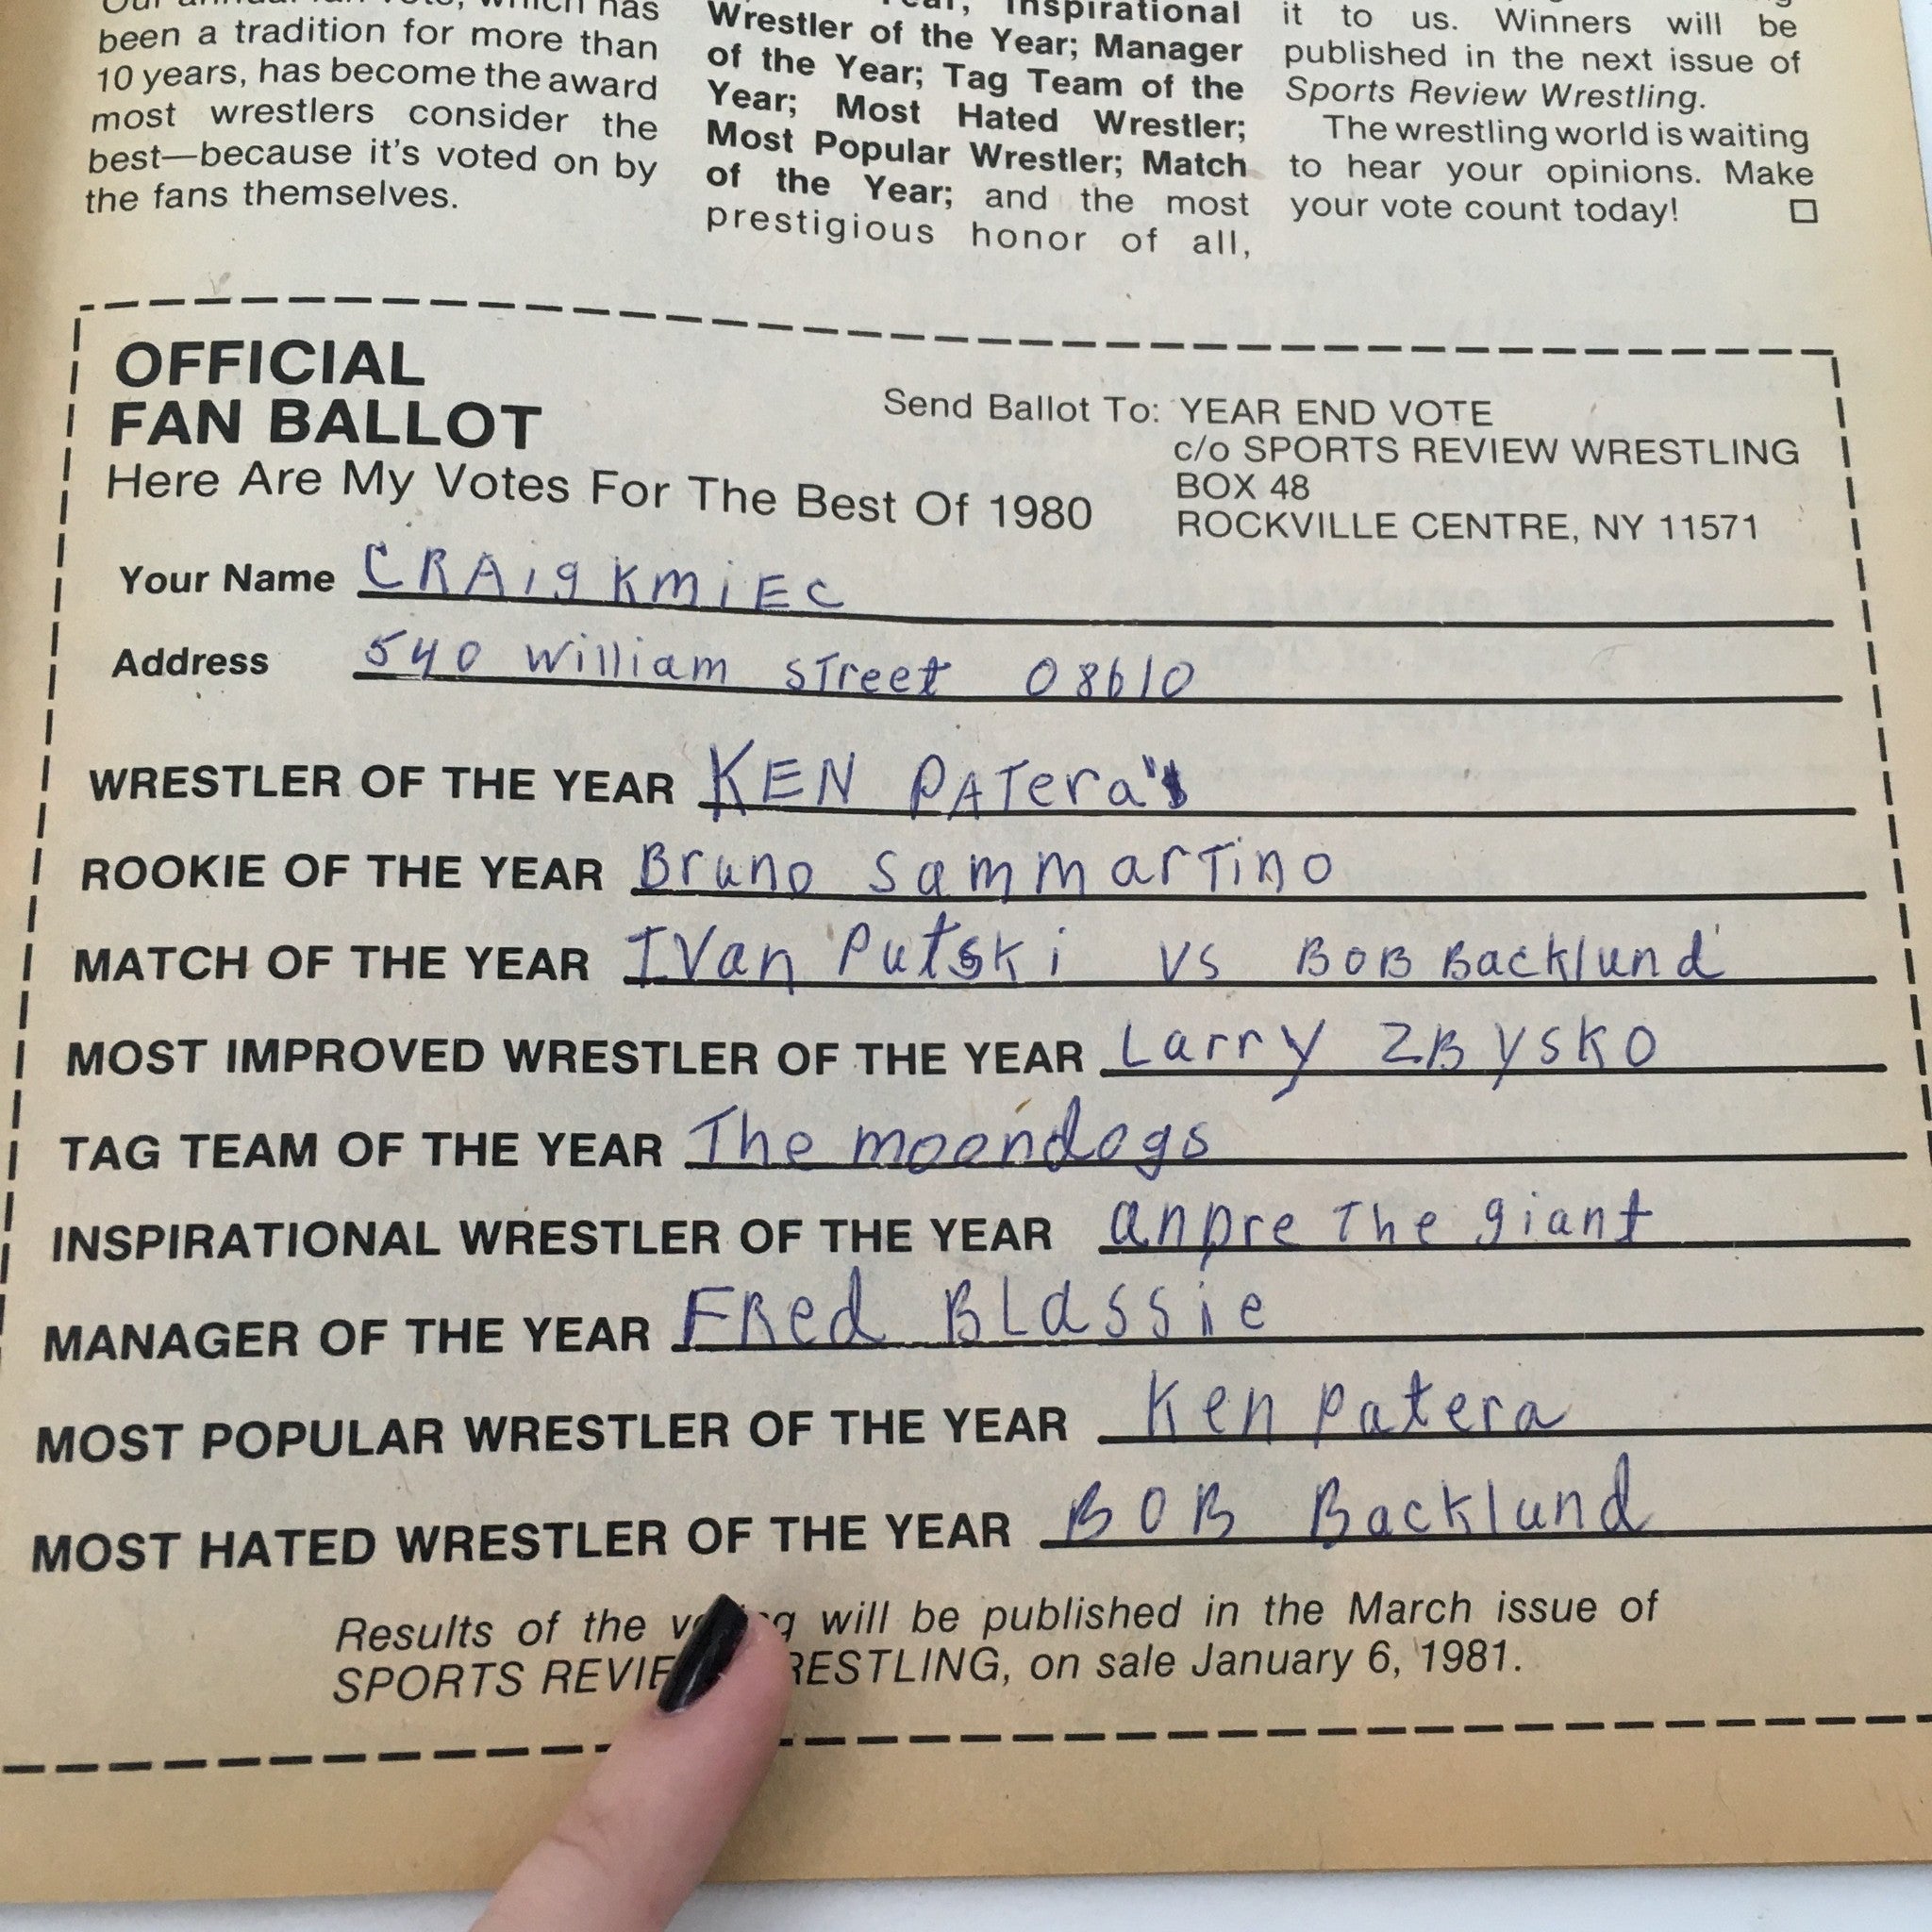 Our annual fan vote, which has
been a tradition for more than
10 years, has become the award
most wrestlers consider the
best—because it's voted on by
the fans themselves.
Inspirational
Wrestler of the Year; Manager
of the Year; Tag Team of the
Year; Most Hated Wrestler;
Most Popular Wrestler; Match
of the Year; and the most
prestigious honor of all,
it to us. Winners will be
published in the next issue of
Sports Review Wrestling.
The wrestling world is waiting
to hear your opinions. Make
your vote count today!
OFFICIAL
FAN BALLOT
Here Are My Votes For The Best Of 1980
Send Ballot To: YEAR END VOTE
c/o SPORTS REVIEW WRESTLING
BOX 48
ROCKVILLE CENTRE, NY 11571
Your Name CRAig KmiEc
Address 540 william sTreet 08610
WRESTLER OF THE YEAR KEN PATera's
ROOKIE OF THE YEAR Bruno sammarTino
MATCH OF THE YEAR IVan Putski VS BOB Backlund
MOST IMPROVED WRESTLER OF THE YEAR Larry ZBYSKO
TAG TEAM OF THE YEAR The moondogs
INSPIRATIONAL WRESTLER OF THE YEAR anpre The giant
MANAGER OF THE YEAR FRed BLassie
MOST POPULAR WRESTLER OF THE YEAR Ken patera
MOST HATED WRESTLER OF THE YEAR BOB Backlund
Results of the will be published in the March issue of
SPORTS on sale January 6, 1981.